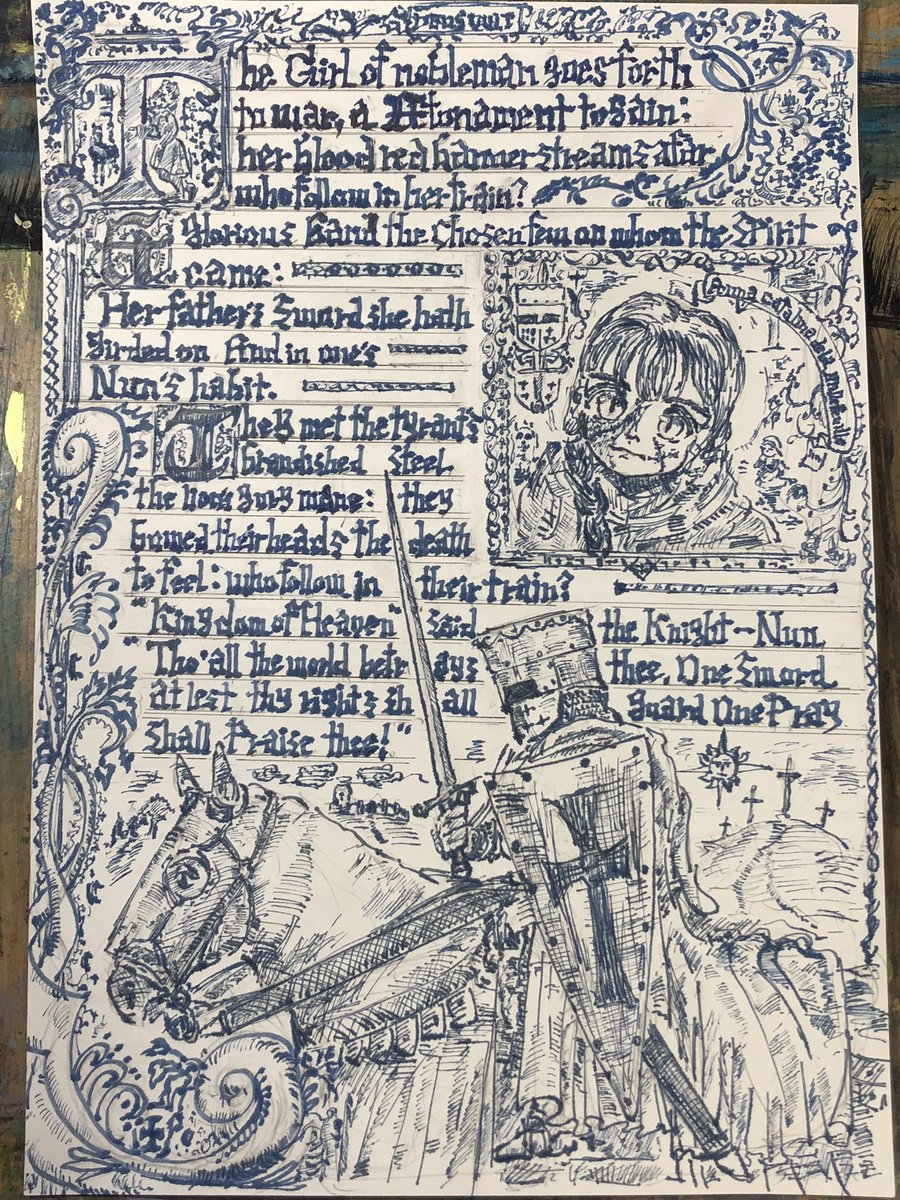 The Girl of nobleman goes forth
to war, a Atonament to Gain:
her blood red banner streams afar
who follow in her train?
A glorious Band the Chosen few on whom the Spirit
came:
Her father's Sword she hath
Girded on And in one's
Nun's habit.
They met the tyrant's
brandished Steel
the gory mane: they
bowed their heads the death
to feel: who follow in their train?
"Kingdom of Heaven" Said the Knight-Nun
"Tho' all the world betrays thee, One Sword
at lest thy rights shall guard One Pray
Shall Praise thee!"